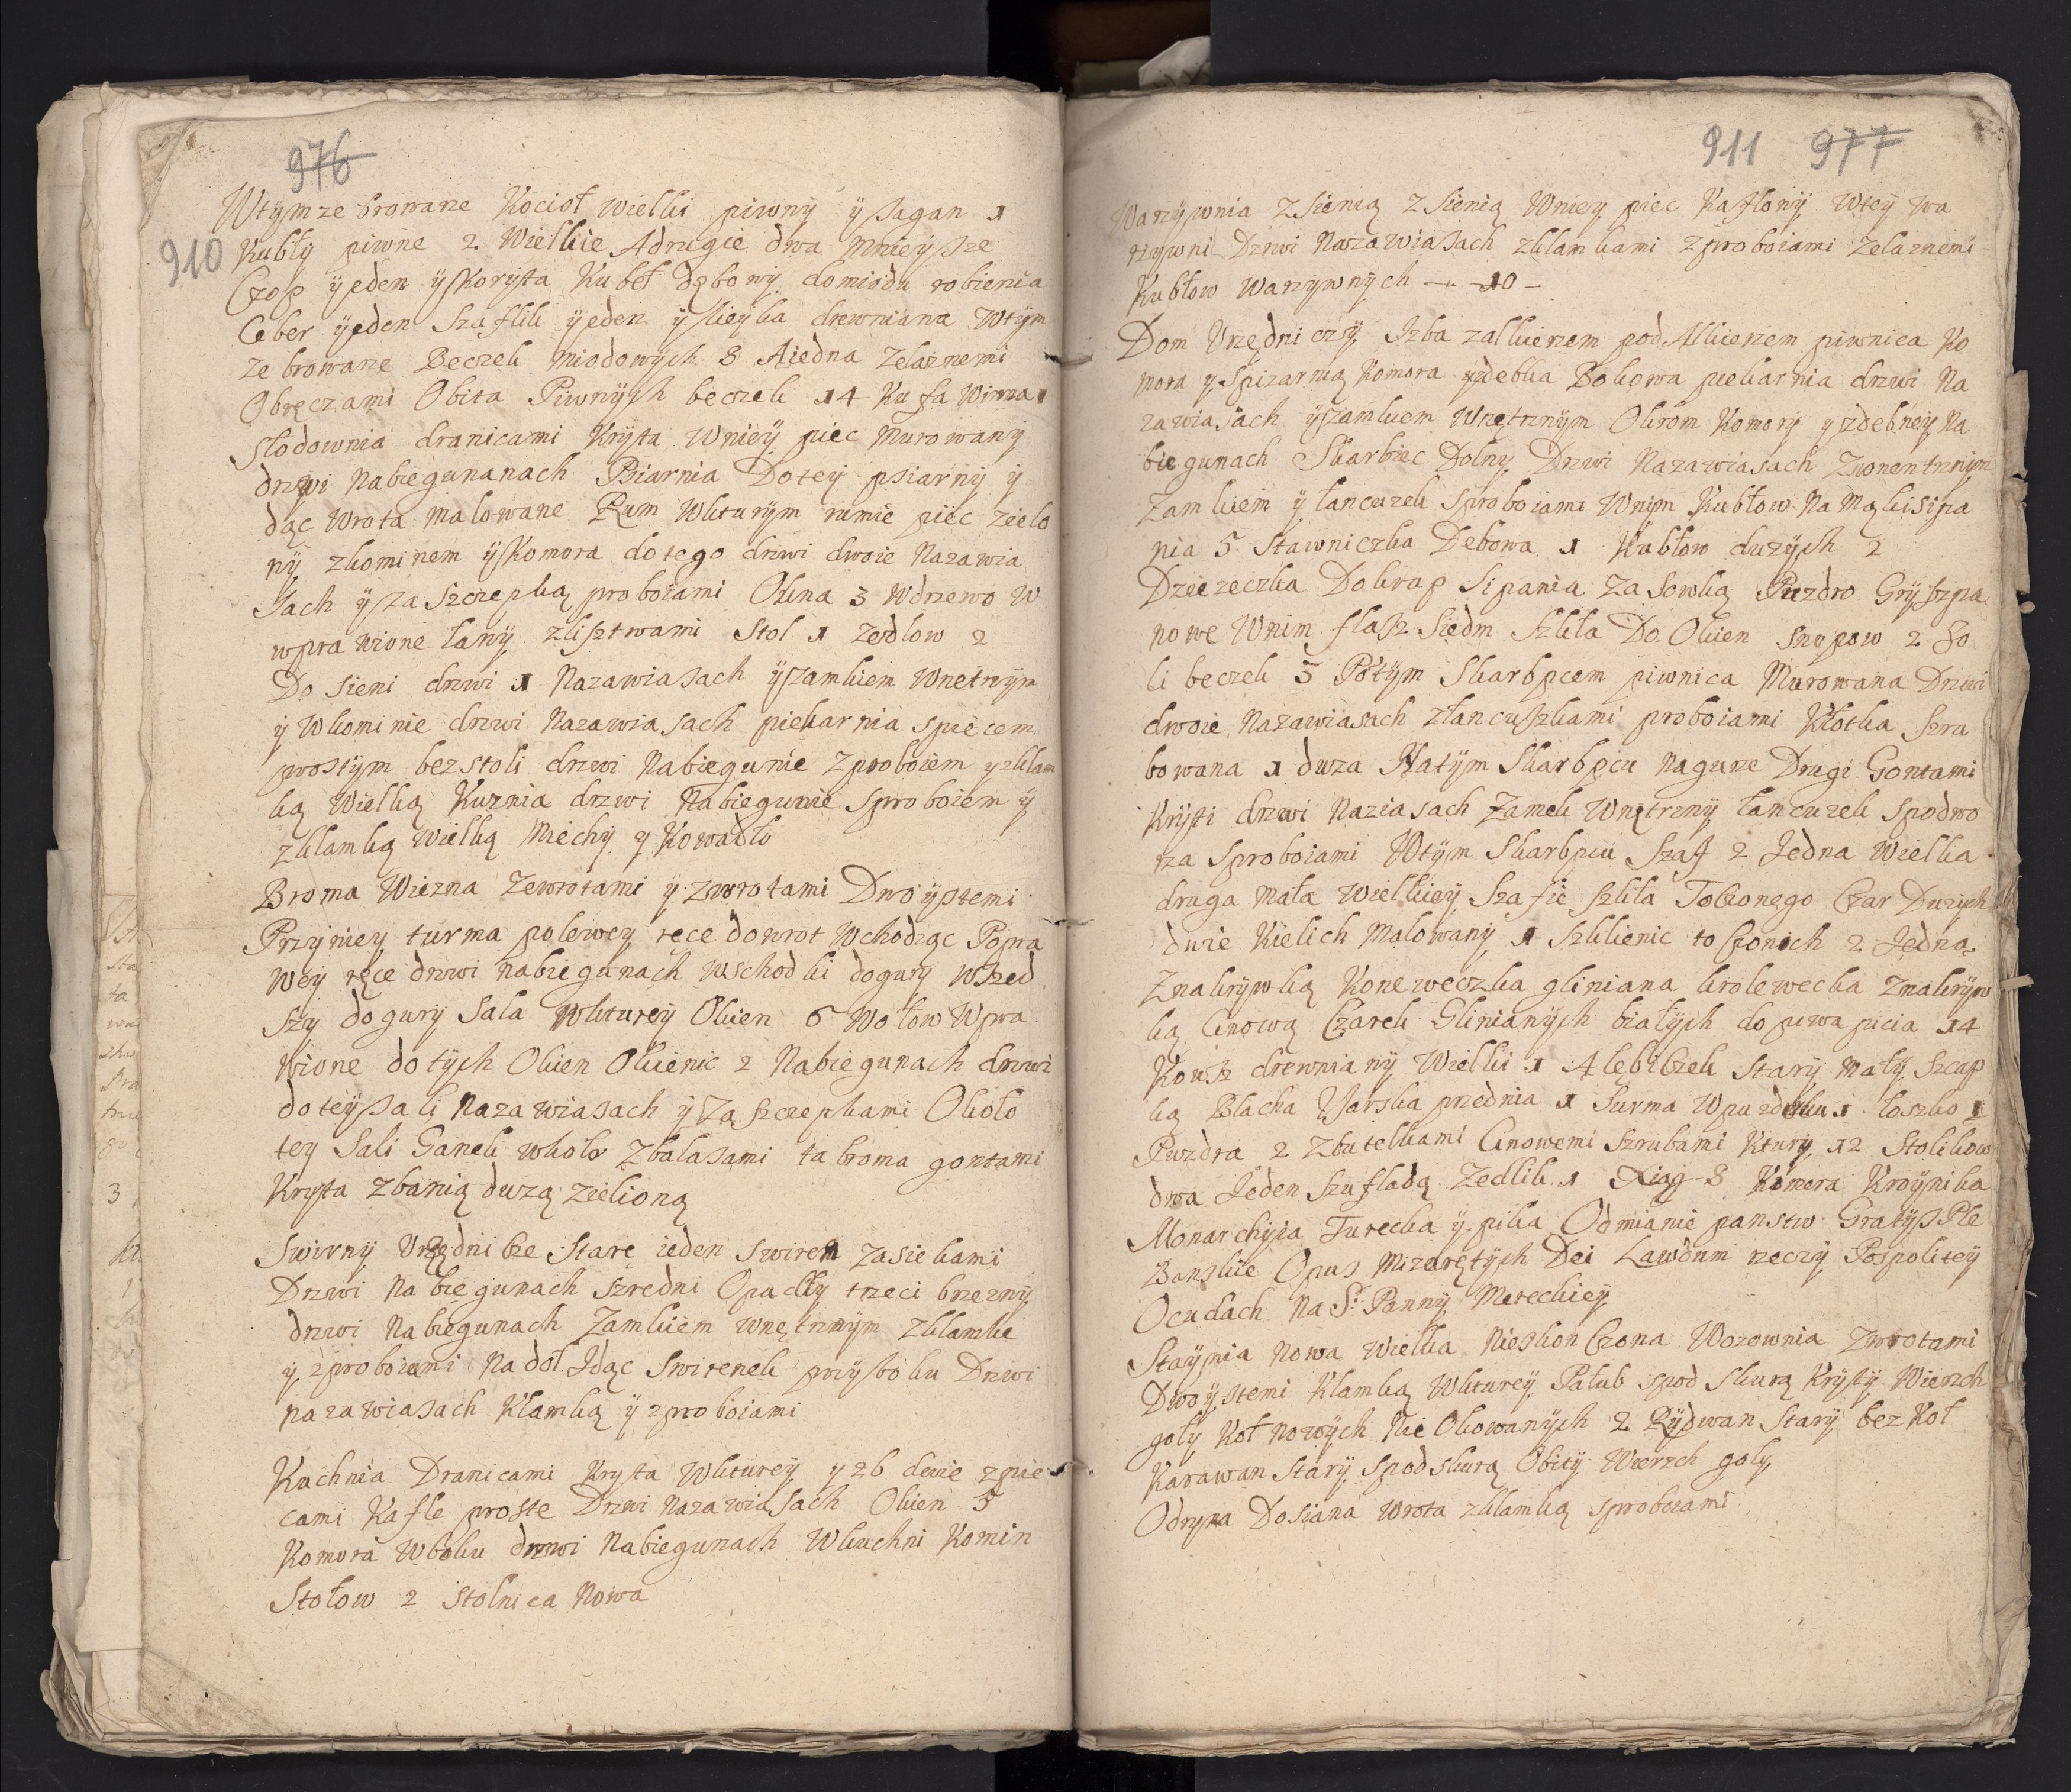 976
910
Wtymze browarze Kocioł wielki piwny ÿ sagan 1
Kubły piwne 2 Wielkie A drugie dwa mnieÿsze
Czop ÿ eden ÿ Koryta Kubeł dębowy do miodu robienia
Ceber ÿeden Szaflik ÿeden ÿ lieÿka drewniana Wtym
ze browarze Beczek miodowÿch 8 Aiedna Zelaznemi
Obręczami Obita Piwnÿch beczek 14 Kufa Winna 1
Słodownia dranicami Kryta Wnieÿ piec Murowanÿ
drzwi Nabiegunanach Psiarnia Do tey psiarny ÿ
dąc Wrota Malowane Rum Wkturym rumie piec Zielo
nÿ zkominem ÿ Komora do tego drzwi dwoie Nazawia
Sach ÿ za Szczepką proboiami Okna 3 Wdrzewo W
wprawione łany zlisztwami Stol 1 Zedlow 2
Do Sieni drzwi 1 Nazawiasach ÿ zamkiem Wnetrzym
ÿ Wkominie drzwi Nazawiasach piekarnia spiecem
prostÿm bez stoli drzwi Nabiegunie Zproboiem y zklam
ką Wielką Kuznia drzwi Nabiegunie Sproboiem ÿ
Zklamką wielką Miechy y Kowadło
Broma Wiezna Zewrotami ÿ zwrotami Dwoÿstemi
Przÿnieÿ turma polewey rece dowrot Wchodząc Popra
weÿ ręce drzwi nabiegunach Wschodki dogury wszed
szy do gury Sala Wkturey Okien 6 Wołow Wpra
wione do tÿch Okien Okienic 2 Nabiegunach drzwi
do teÿ sali Nazawiasach ÿ Zaszczepkami Około
tey Sali Ganek wkoło Zbalasami ta broma gontami
Kryta Zbanią duzą zielioną
Swirny Urzędnicze Starę ieden Swiren Zasiekami
Drzwi Nabiegunach szredni Opadły trzeci brzezny
drzwi Nabiegunach Zamkiem wnętrznym Zklamke
y zproboiami Na doł Idąc Swirenek przÿ boku Drzwi
nazawiasach Klamką ÿ zproboiami
Kuchnia Dranicami Kryta Wkturey y zb dwie zpie
cami Kafle proste Drzwi Nazawiasach Okien 5
Komora Wboku drzwi Nabiegunach Wkuchni Komin
Stołow 2 Stolnica Nowa
911 977
Warzÿwnia Zsienią Zsienią Wniey piec Kaflowy Wteÿ wa
rzywni Drzwi Nazawiasach zklamkami zproboiami Zelaznemi
Kubłow Warzywnÿch — 10 —
Dom Urzędniczÿ Izba zalkierzem pod Alkierzem piwnica Ko
mora y Spizarnią Komora yzdebka Bokowa piekarnia drzwi Na
zawiasach ÿ zamkiem Wnętrznÿm Okrom Komory y zdebneÿ Na
biegunach Skarbiec Dolny Drzwi Nazawiasach Zwonentrznym
Zamkiem ÿ łancuzek Sproboiami Wnim Kubłow Na Mąki sipa
nia 5 Stawniczka Debowa 1 Kubłow duzÿch 2
Dziezeczka Dokrup Sipania Zasowką Puzdro Grÿszpa
nowe Wnim flasz Siedm Szkła Do Okien Snopow 2 So
li beczek 3 Potÿm Skarbpcem piwnica Murowana Drzwi
dwoie Nazawiasach złancuszkami proboiami Kłotka Szra
bowana 1 duza Natÿm Skarbpcu Nagurze Drugi Gontami
Krÿti drzwi Naziasach Zamek Wnętrzny łancuzek Spodwo
rza Sproboiami Wtÿm Skarbpcu Szaf 2 Jedna Wielka
druga Mała Wielkieÿ Szafie szkła Toczonego Czar Duzych
dwie Kielich Malowanÿ 1 Szklienic toczonich 2 Jedna
Znakrÿwką Koneweczka gliniana krolewecka Znakrÿw
ką Cinową Czarek Glinianÿch białych do piwa picia 14
Kousz drewnianÿ Wielki 1 Alębiczek Stary Małÿ Szcap
ką Blacha Usarska przednia 1 Surma Wpuzderku 1 łoszko 1
Puzdra 2 Zbutelkami Cinowemi Szrubami Ktury 12 Stolikow
dwa Jeden Szufladą Zedlik 1 Xiąg 8 Komora Kroÿnika
Monarchyia Turecka ÿ pika Odmianie panstw Gratÿs Ple
Banskie Opus Dei Lawdum rzeczÿ Pospoliteÿ
Ocudach Na S: Panny Mereckieÿ
Staÿnia Nowa Wielka Nieskonczona Wozownia Zwrotami
Dwoÿstemi Klamką Wkturey Pałub spod Skurą Krÿtÿ Wierzch
goły Koł Nowÿch Nie Okowanÿch 2 Rÿdwan Starÿ bez Koł
Karawan Starÿ Spod skurą Obitÿ Wierzch goły
Odryna Dosiana Wrota zklamką sproboiami